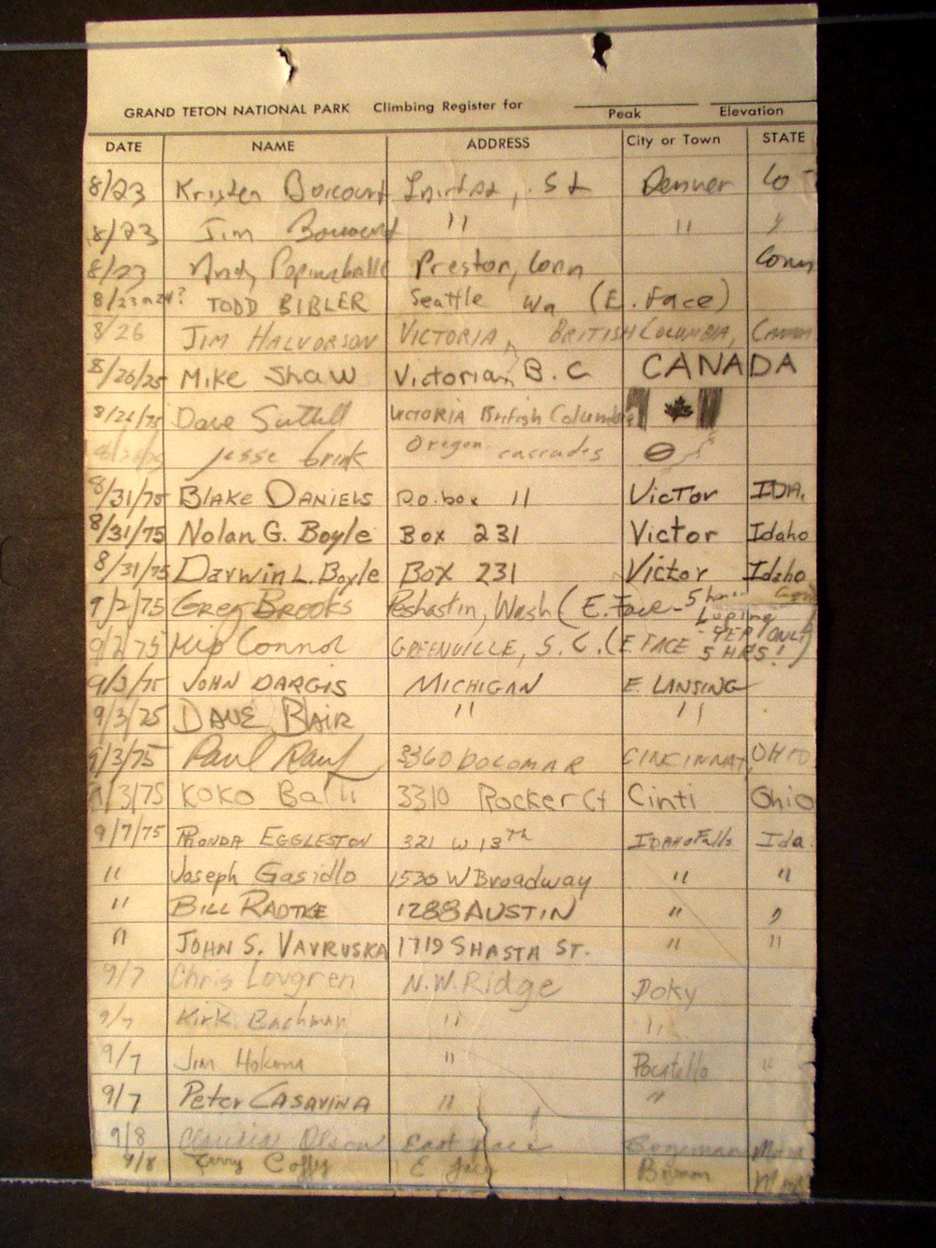 GRAND TETON NATIONAL PARK Climbing Register for
Peak Elevation
DATE NAME ADDRESS City or Town STATE
8/23 Kristen St Denver Co
8/23 Jim " " "
8/23 Andy Preston, Conn Conn
8/23 or 24? TODD BIBLER Seattle Wa (E. Face)
8/26 JIM HALVORSON VICTORIA, BRITISH COLUMBIA, CANADA
8/26/75 Mike Shaw Victoria, B.C CANADA
8/26/75 Dave VICTORIA British Columbia
Jesse brink Oregon cascades
8/31/75 BLAKE DANIELS P.O. box 11 VICTOR IDA.
8/31/75 Nolan G. Boyle Box 231 Victor Idaho
8/31/75 Darwin L. Boyle Box 231 Victor Idaho
9/2/75 GREG BROOKS Peshastin, Wash (E. Face - 5 hours
9/2/75 Kip Connor GREENVILLE, S. C. (E. FACE - YEP! ONLY 5 HRS!)
9/3/75 JOHN DARGIS MICHIGAN E. LANSING
9/3/75 DAVE BAIR " "
9/3/75 Paul Rauf 3360 DOLOMAR CINCINNATI, OHIO
9/3/75 KOKO 3310 Rocker Ct Cinti Ohio
9/7/75 RHONDA EGGLESTON 321 W 13th IDAHO Falls Ida.
" Joseph Gasidlo 1530 W Broadway " "
" BILL RADTKE 1288 AUSTIN " "
" JOHN S. VAVRUSKA 1719 SHASTA ST. " "
9/7 Chris Lovgren N.W. Ridge Poky
9/7 Kirk Bachman " "
9/7 Jim " Pocatello "
9/7 Peter CASAVINA " "
9/8 Claudia Olson East face Bozeman Mont
9/8 Terry E face